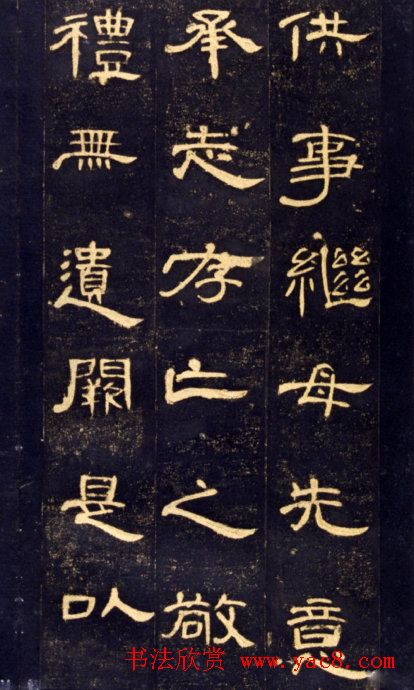 供事繼母先意
承志存亡之敬
禮無遺闕是以
书法欣赏 www.yac8.com